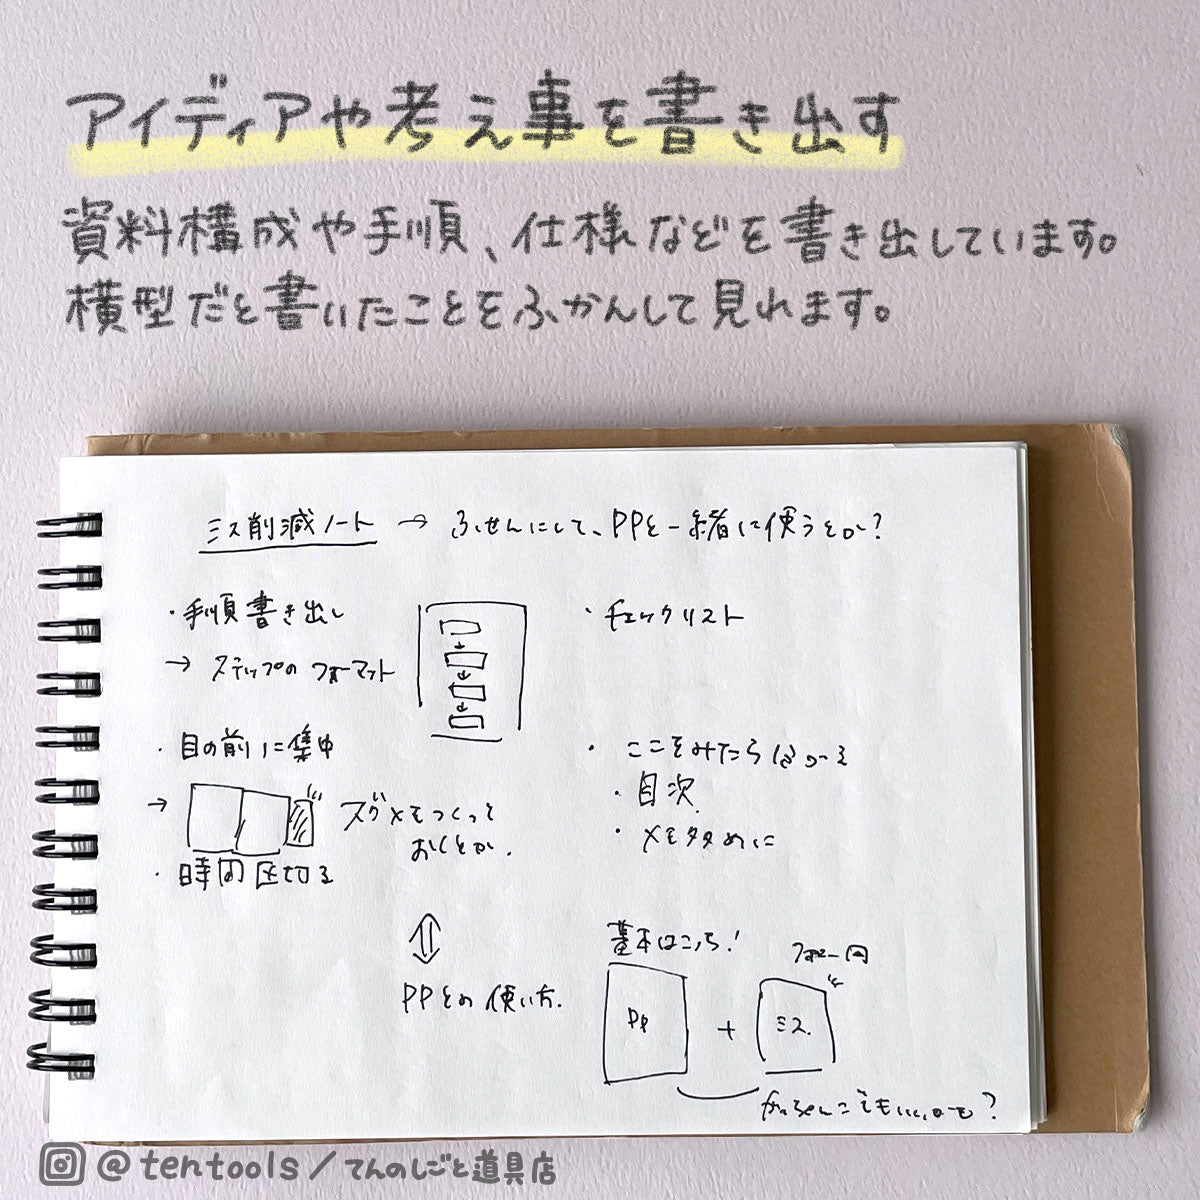 アイディアや考え事を書き出す
資料構成や手順、仕様などを書き出しています。
横型だと書いたことをふかんして見れます。
ミス削減ノート → ふせんにして、PPと一緒に使うとか?
・手順書き出し
→ ステップのフォーマット
・目の前に集中
→ スグメモつくって
おくとか.
・時間区切る
⇕
PPとの使い方.
・チェックリスト
・ここをみたら
・目次
・メモタメに
基本はこっち!
PP + ミス.
でもいいかも?
@tentools/てんのしごと道具店